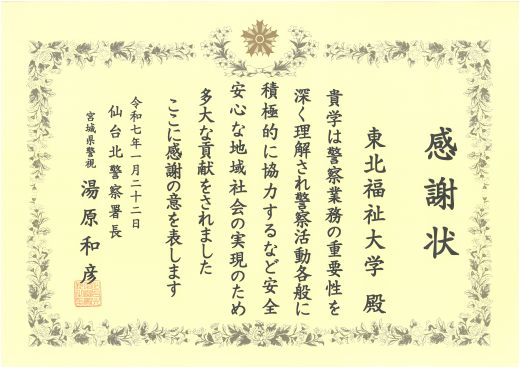 感謝状
東北福祉大学 殿
貴学は警察業務の重要性を
深く理解され警察活動各般に
積極的に協力するなど安全
安心な地域社会の実現のため
多大な貢献をされました
ここに感謝の意を表します
令和七年一月二十二日
仙台北警察署長
宮城県警視 湯原和彦